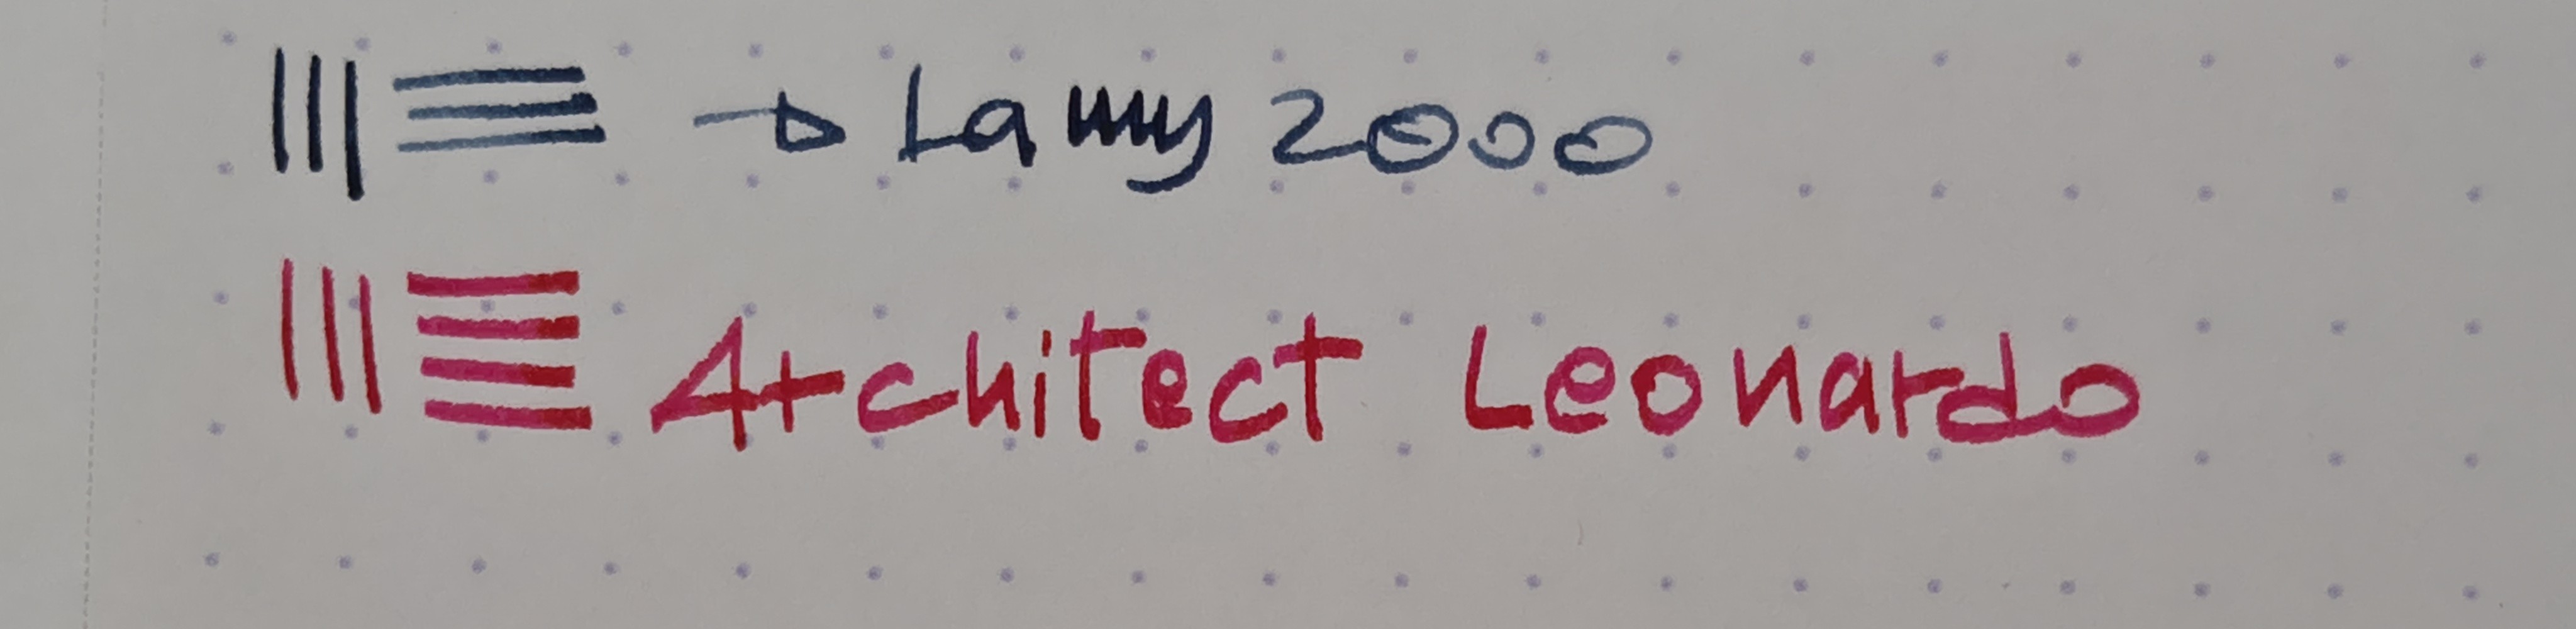 → Lamy 2000
Architect Leonardo